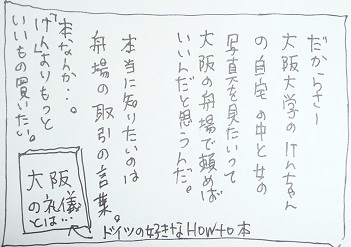 だからさー
大阪大学のけんちゃん
の自宅の中と女の
写真を見たいって
大阪の舟場で頼めば
いいんだと思うんだ。
本当に知りたいのは
舟場の取引の言葉。
本なんか…。
「げん」よりもっと
いいもの買いたい。
大阪
の礼儀
とは…
ドイツの好きなHowto本